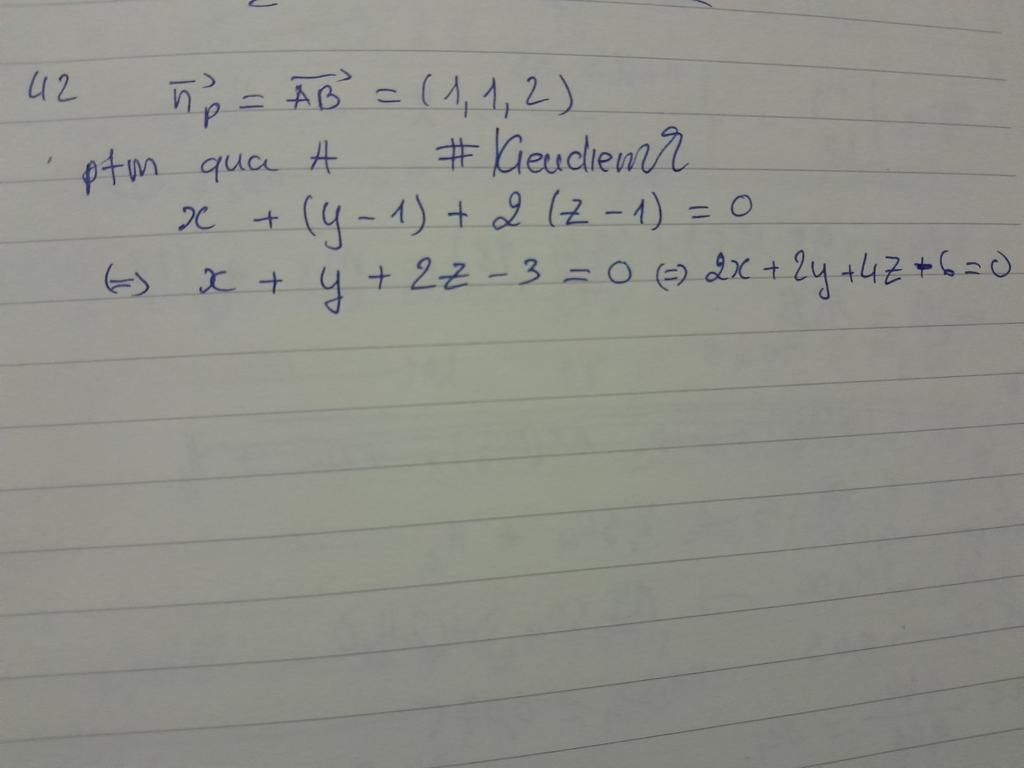 42 n⃗p = AB⃗ = (1, 1, 2)
ptm qua A # KIeudiem
x + (y - 1) + 2 (z - 1) = 0
(=) x + y + 2z - 3 = 0 (=) 2x + 2y + 4z - 6 = 0